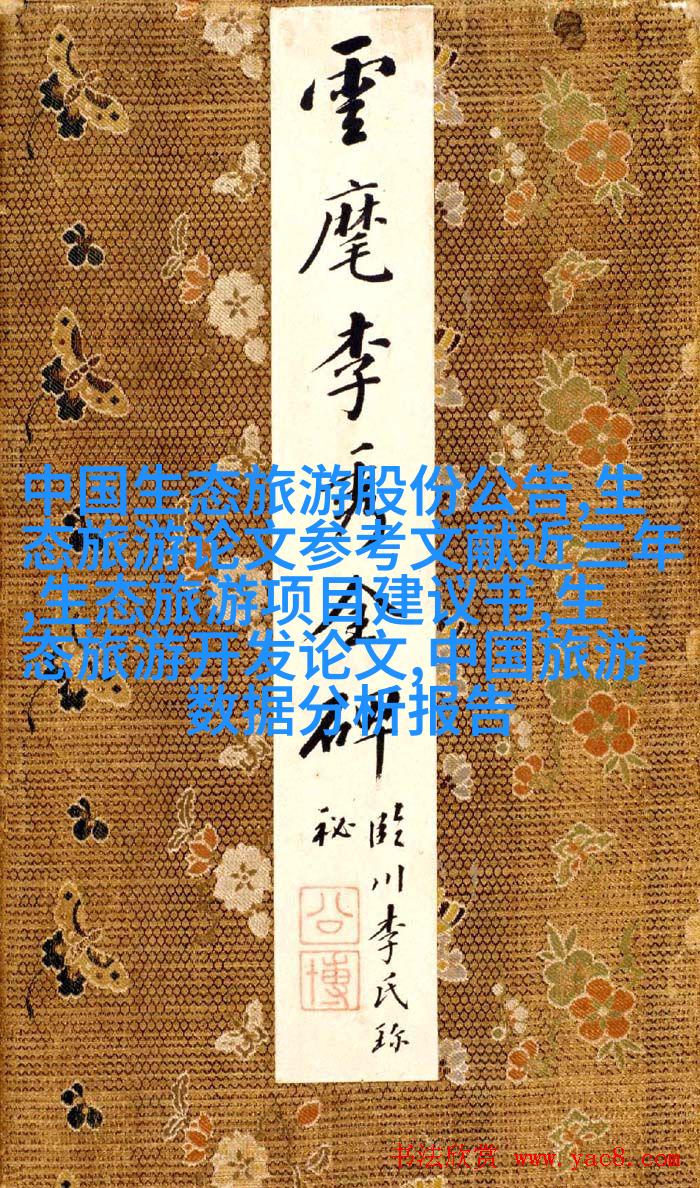 雲麾李秀全碑
臨川李氏珍
秘
公博
中国生态旅游股份公告,生
态旅游论文参考文献近三年
,生态旅游项目建议书,生
态旅游开发论文,中国旅游
数据分析报告
书法欣赏 www.yac8.com